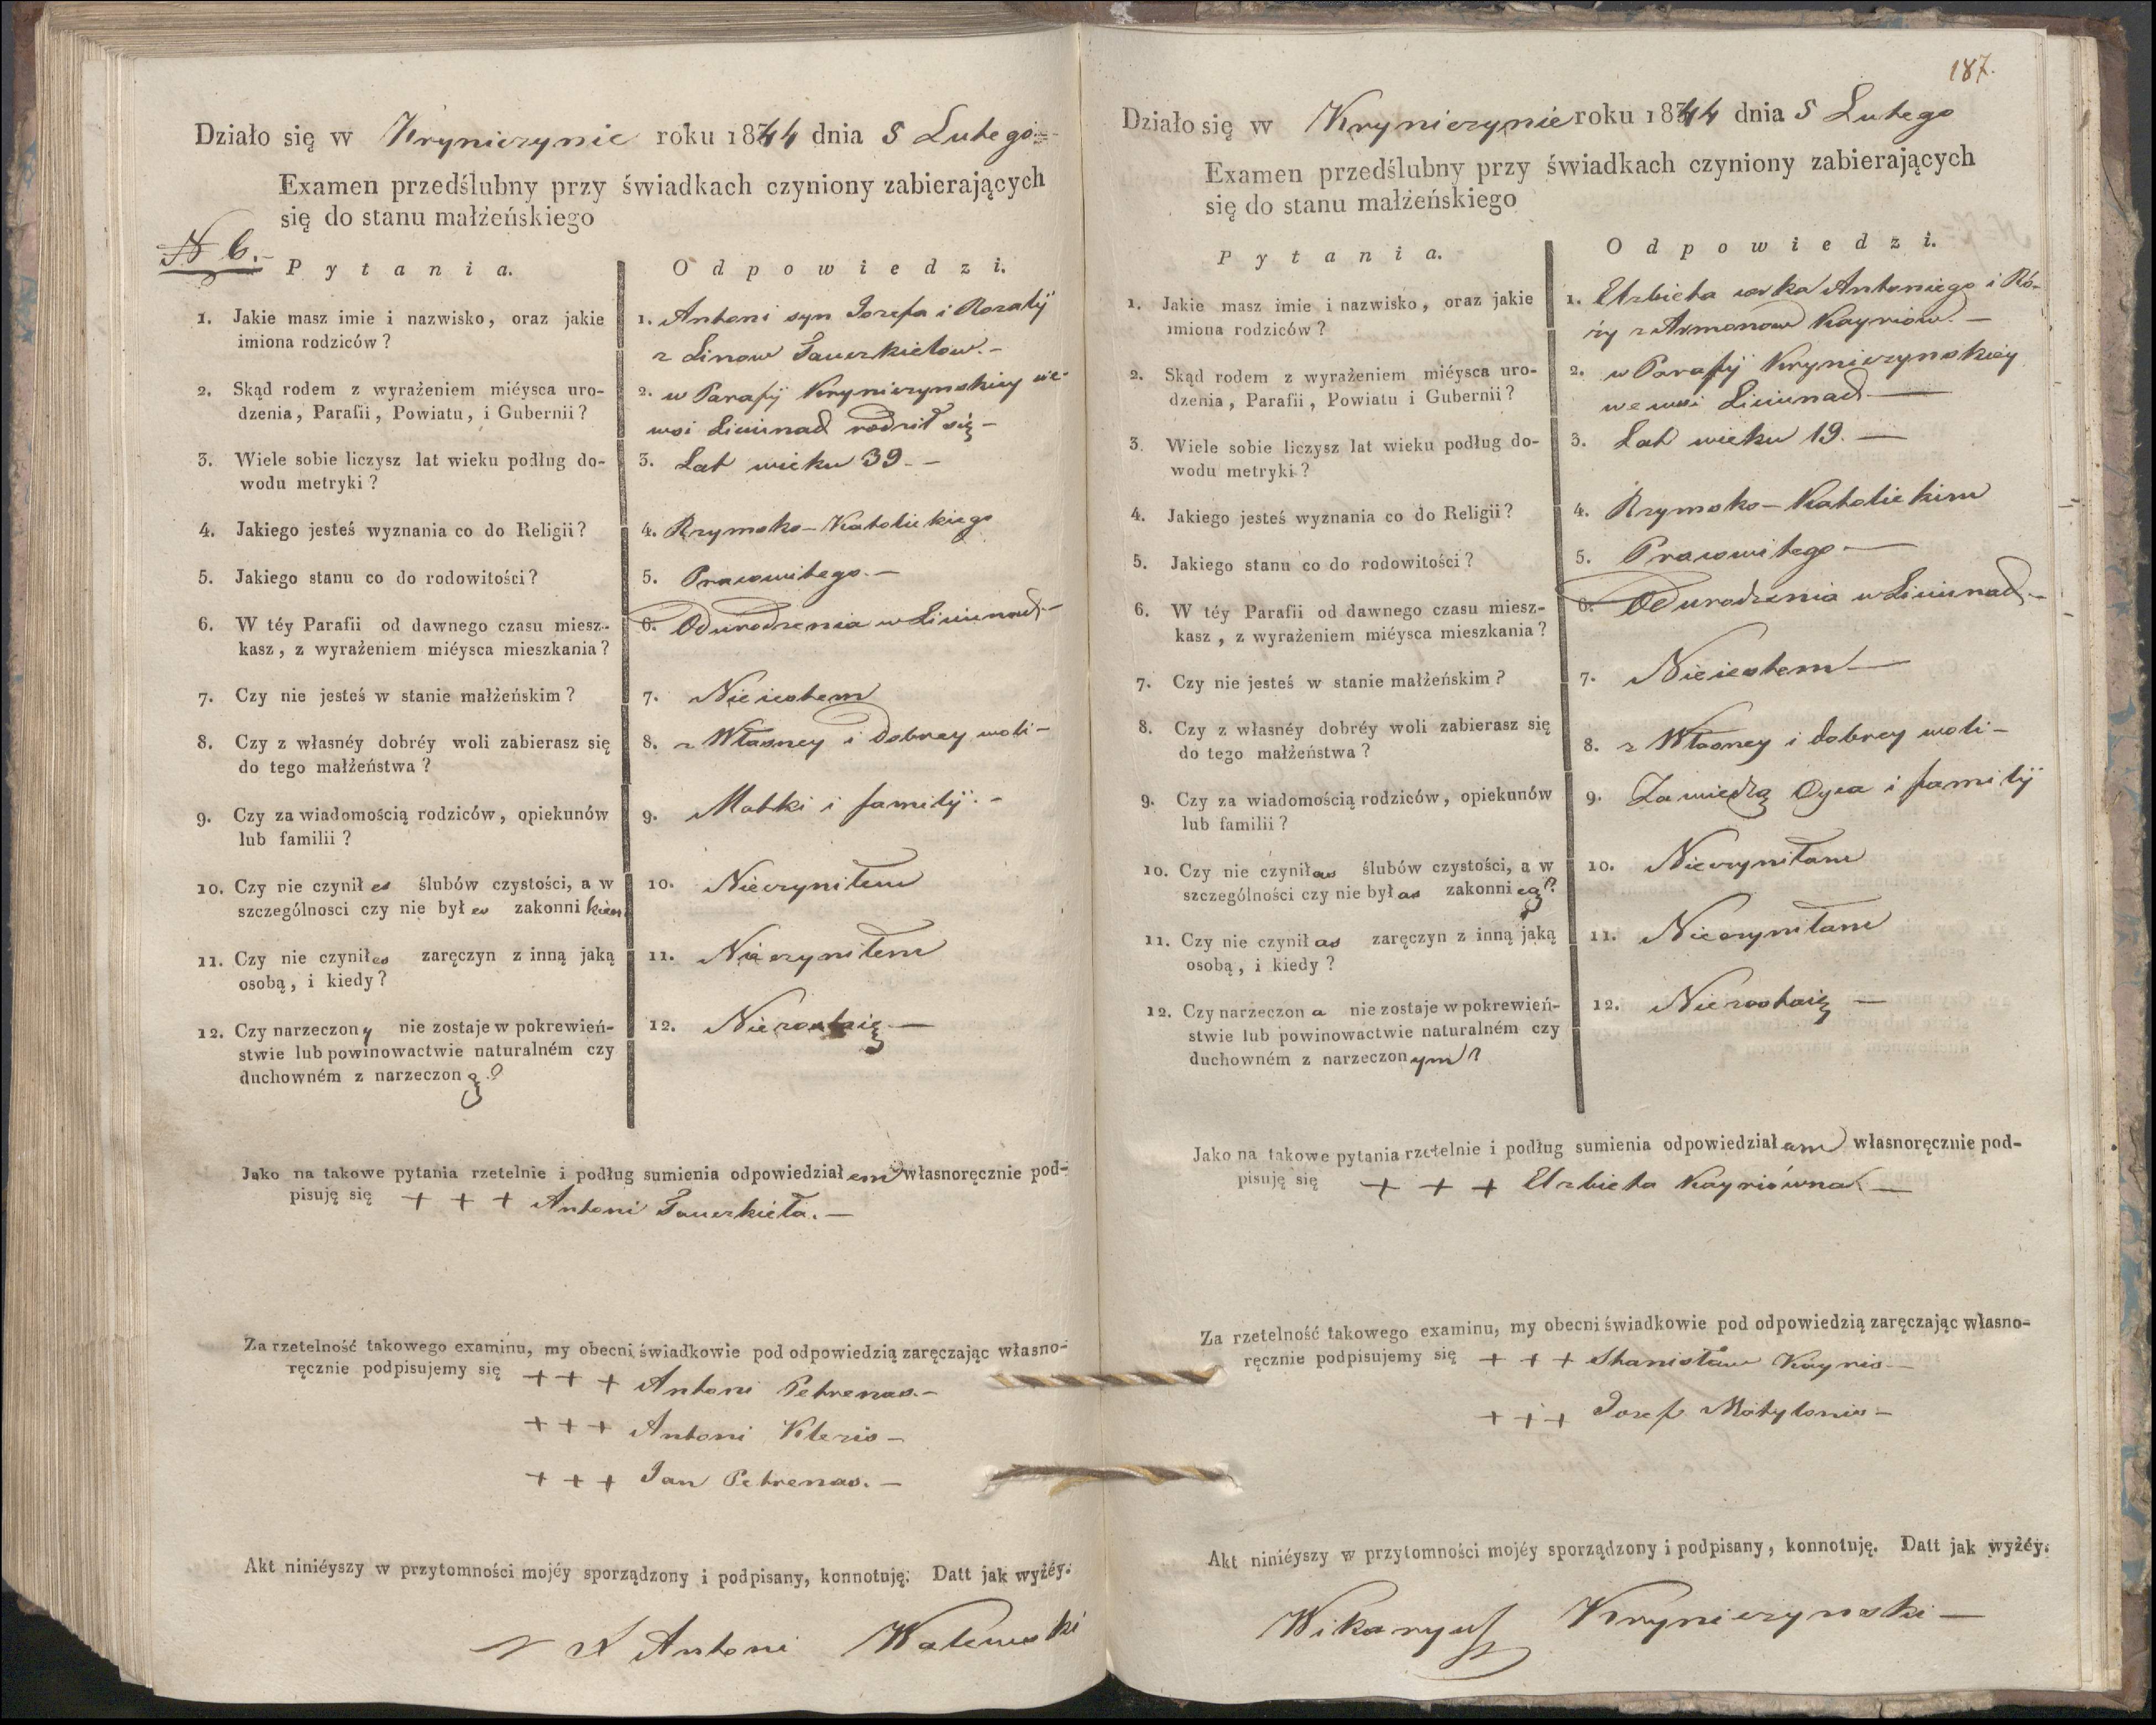 Działo się w Kryniczynie roku 1844 dnia 5 Lutego
Examen przedślubny przy świadkach czyniony zabierających
się do stanu małżeńskiego
N 6.
Pytania.
Odpowiedzi.
1. Jakie masz imie i nazwisko, oraz jakie
imiona rodziców?
1. Antoni syn Jozefa i Rozalij
z Linow
2. Skąd rodem z wyrażeniem miéysca uro-
dzenia, Parafii, Powiatu, i Gubernii?
2. w Parafij Kryniczynskiey we
wsi rodził się -
3. Wiele sobie liczysz lat wieku podług do-
wodu metryki?
3. Lat wieku 39. -
4. Jakiego jesteś wyznania co do Religii?
4. Rzymsko-Katolickiego
5. Jakiego stanu co do rodowitości?
5. Pracowitego. -
6. W téy Parafii od dawnego czasu miesz-
kasz, z wyrażeniem miéysca mieszkania?
6. Od urodzenia w
7. Czy nie jesteś w stanie małżeńskim?
7. Nieiestem
8. Czy z własnéy dobréy woli zabierasz się
do tego małżeństwa?
8. z Własney i dobrey woli -
9. Czy za wiadomością rodziców, opiekunów
lub familii?
9. Matki i familij. -
10. Czy nie czynił es ślubów czystości, a w
szczególnosci czy nie był es zakonni kiem
10. Nieczyniłem
11. Czy nie czynił es zaręczyn z inną jaką
osobą, i kiedy?
11. Nieczyniłem
12. Czy narzeczon y nie zostaje w pokrewień-
stwie lub powinowactwie naturalném czy
duchowném z narzeczon ą?
12. Niezostaię —
Jako na takowe pytania rzetelnie i podług sumienia odpowiedział em własnoręcznie pod-
pisuję się + + + Antoni
Za rzetelność takowego examinu, my obecni świadkowie pod odpowiedzią zaręczając własno-
ręcznie podpisujemy się + + + Antoni Petrenas. -
+ + + Antoni Kleris -
+ + + Jan Petrenas. -
Akt niniéyszy w przytomności mojéy sporządzony i podpisany, konnotuję. Datt jak wyżéy.
X Antoni Walewski
187.
Działo się w Kryniczynie roku 1844 dnia 5 Lutego
Examen przedślubny przy świadkach czyniony zabierających
się do stanu małżeńskiego
Pytania.
Odpowiedzi.
1. Jakie masz imie i nazwisko, oraz jakie
imiona rodziców?
1. Elzbieta corka Antoniego i Ró-
ży z Armonow Kayriow. -
2. Skąd rodem z wyrażeniem miéysca uro-
dzenia, Parafii, Powiatu i Gubernii?
2. w Parafij Kryniczynskiey
we wsi
3. Wiele sobie liczysz lat wieku podług do-
wodu metryki?
3. Lat wieku 19. —
4. Jakiego jesteś wyznania co do Religii?
4. Rzymsko-Katolickim
5. Jakiego stanu co do rodowitości?
5. Pracowitego —
6. W téy Parafii od dawnego czasu miesz-
kasz, z wyrażeniem miéysca mieszkania?
6. Od urodzenia w
7. Czy nie jesteś w stanie małżeńskim?
7. Nieiestem —
8. Czy z własnéy dobréy woli zabierasz się
do tego małżeństwa?
8. z Własney i dobrey woli -
9. Czy za wiadomością rodziców, opiekunów
lub familii?
9. Za wiedzą Oyca i familij
10. Czy nie czynił as ślubów czystości, a w
szczególności czy nie był as zakonni cą?
10. Nieczyniłam
11. Czy nie czynił as zaręczyn z inną jaką
osobą, i kiedy?
11. Nieczyniłam
12. Czy narzeczon a nie zostaje w pokrewień-
stwie lub powinowactwie naturalném czy
duchowném z narzeczon ym?
12. Niezostaię —
Jako na takowe pytania rzetelnie i podług sumienia odpowiedział am własnoręcznie pod-
pisuję się + + + Elzbieta Kayriówna. —
Za rzetelność takowego examinu, my obecni świadkowie pod odpowiedzią zaręczając własno-
ręcznie podpisujemy się + + + Stanisław Kayris -
+ + + Jozef Matylonis -
Akt niniéyszy w przytomności mojéy sporządzony i podpisany, konnotuję. Datt jak wyżéy.
Wikaryusz Kryniczynski —